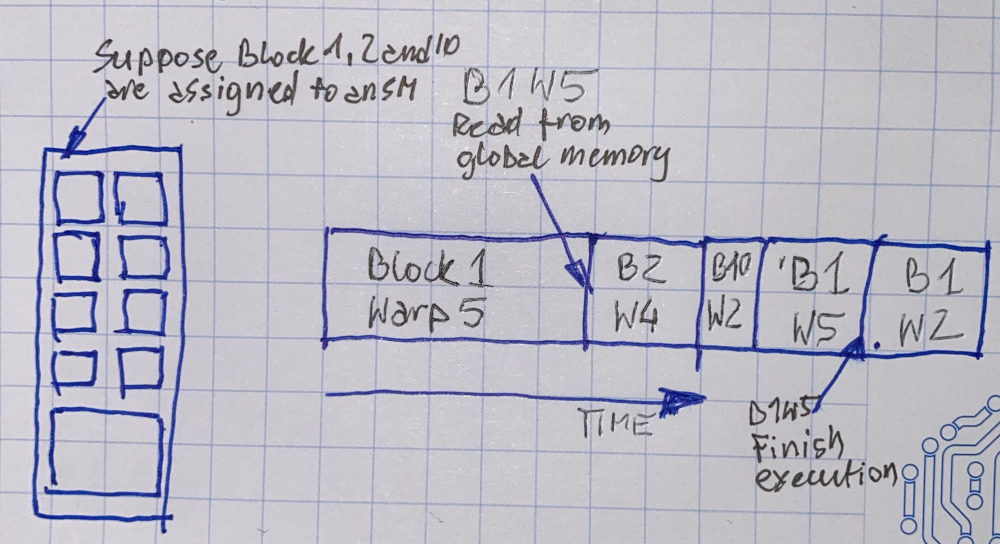 Suppose Block 1, 2 and 10
are assigned to an SM
B1 W5
Read from
global memory
Block 1
Warp 5
B2
W4
B10
W2
B1
W5
B1
W2
TIME
B1W5
Finish
execution